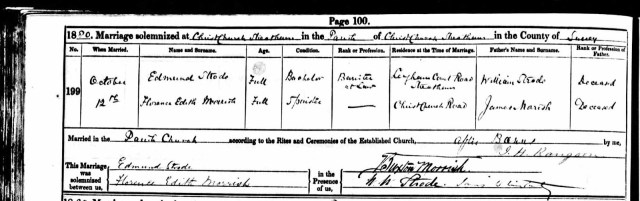 Page 100.
1880. Marriage solemnized at Christ Church Streatham in the Parish of Christ Church Streatham in the County of Surrey
No. When Married. Name and Surname. Age. Condition. Rank or Profession. Residence at the Time of Marriage. Father's Name and Surname. Rank or Profession of Father.
199 October 12th
Edmund Strode Full Bachelor Barrister at Law Leigham Court Road Streatham William Strode Deceased
Florence Edith Morrish Full Spinster — Christ Church Road James Morrish Deceased
Married in the Parish Church according to the Rites and Ceremonies of the Established Church, after Banns by me,
This Marriage was solemnized between us, Edmund Strode
Florence Edith Morrish
in the Presence of us, Morrish
W. Strode